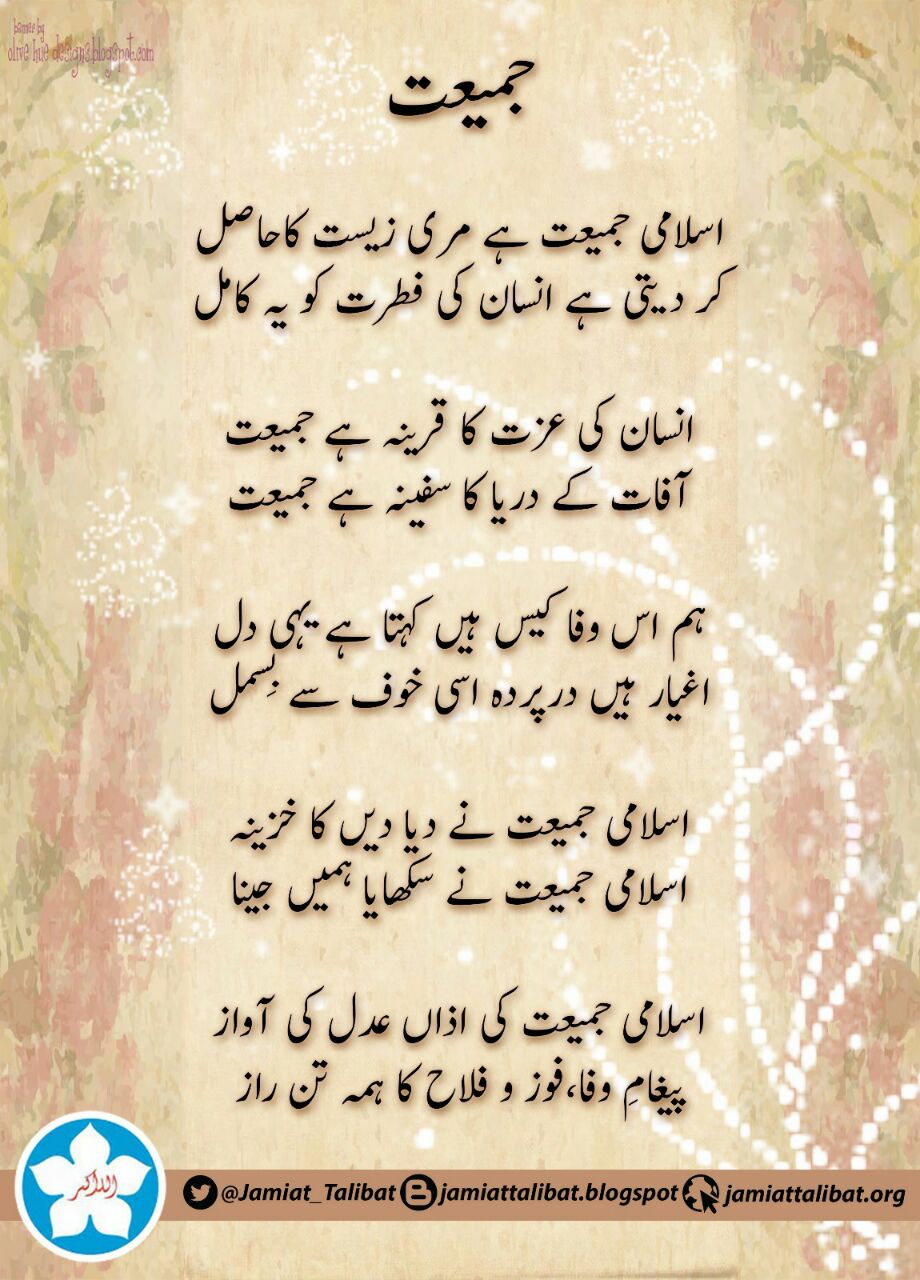 banner by
olive hue designs.blogspot.com
جمیعت
اسلامی جمیعت ہے مری زیست کاحاصل
کر دیتی ہے انسان کی فطرت کو یہ کامل
انسان کی عزت کا قرینہ ہے جمیعت
آفات کے دریا کا سفینہ ہے جمیعت
ہم اس وفا کیس ہیں کہتا ہے یہی دل
اغیار ہیں درپردہ اسی خوف سے بِسمل
اسلامی جمیعت نے دیا دیں کا خزینہ
اسلامی جمیعت نے سکھایا ہمیں جینا
اسلامی جمیعت کی اذاں عدل کی آواز
پیغامِ وفا،فوز و فلاح کا ہمہ تن راز
اللہ اکبر
@Jamiat_Talibat jamiattalibat.blogspot jamiattalibat.org